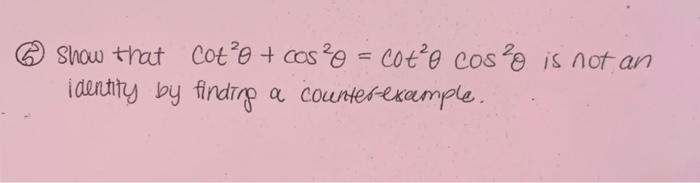 ⑤ Show that cot²θ + cos²θ = cot²θ cos²θ is not an
identity by finding a counter-example.